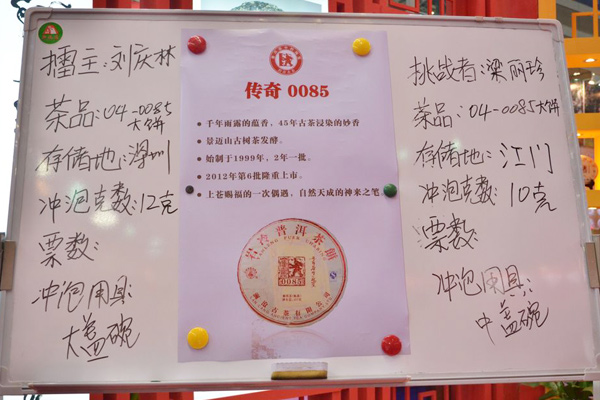 擂主:刘庆林
茶品:04-0085
大饼
存储地:深圳
冲泡克数:12克
票数:
冲泡用具:
大盖碗
传奇 0085
千年雨露的蕴香,45年古茶浸染的妙香
景迈山古树茶发酵。
始制于1999年,2年一批。
2012年第6批隆重上市。
上苍赐福的一次偶遇,自然天成的神来之笔
0085
挑战者:梁丽珍
茶品:04-0085大饼
存储地:江门
冲泡克数:10克
票数:
冲泡用具:
中盖碗